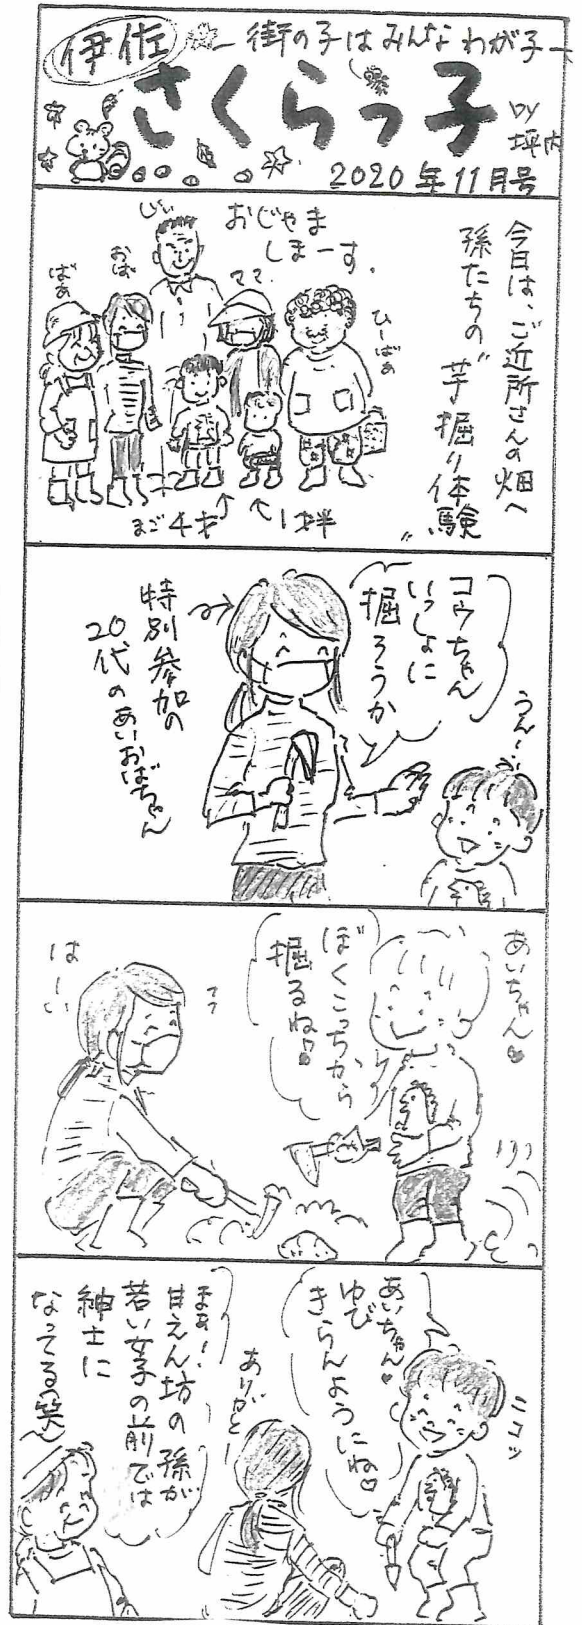 伊佐
― 街の子はみんなわが子 ―
さくらっ子
by
坪内
2020年11月号
今日は、ご近所さんの畑へ
孫たちの〝芋掘り体験〟
おじゃま
しまーす。
じぃ
ばぁ
おば
ママ
ひーばぁ
まご4才
1才半
コウちゃん
いっしょに
掘ろうか
うん!
特別参加の
20代のあいおばちゃん
あいちゃん♥
ぼくこっちから
掘るね♪
はーい
あいちゃん♥
ゆび
きらんようにね♡
ニコッ
ありがと
まぁ!
甘えん坊の孫が
若い女子の前では
紳士に
なってる(笑)